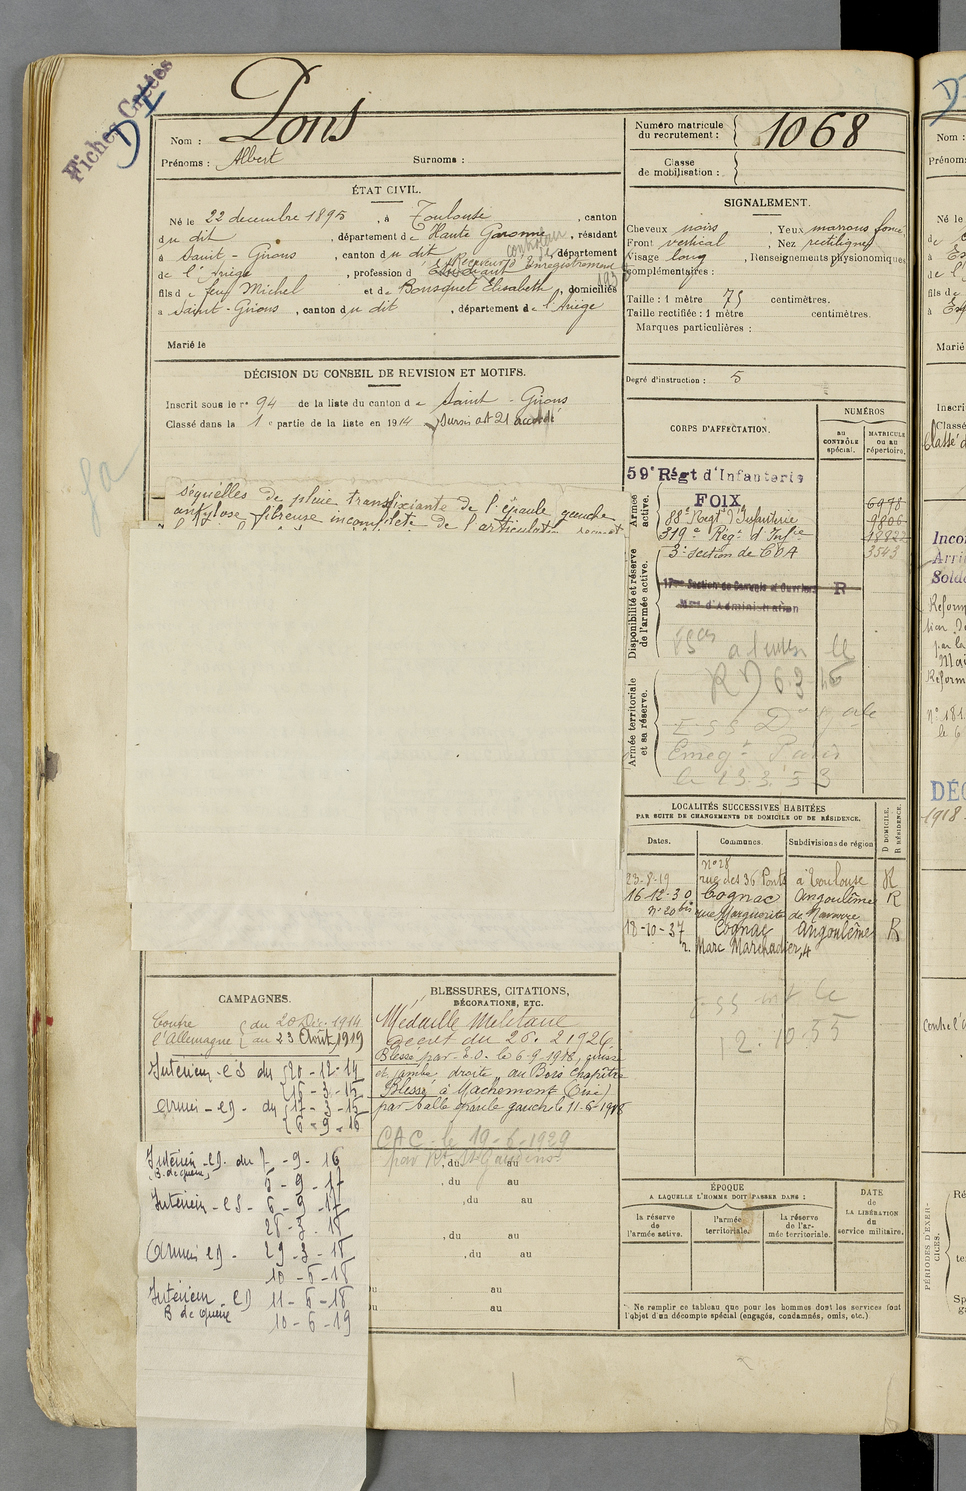 Fiches Créées
D I
Nom : Pons
Prénoms : Albert Surnoms :
Numéro matricule
du recrutement : 1068
Classe
de mobilisation :
ÉTAT CIVIL.
Né le 22 decembre 1895, à Toulouse, canton
du dit, département de Haute Garonne, résidant
à Saint-Girons, canton du dit, département
de l'Ariège, profession d'Etudiant Receveur Enregistrement
fils de feu Michel et de Bousquet Elisabeth, domiciliés
à Saint-Girons, canton du dit, département de l'Ariège
Marié le
SIGNALEMENT.
Cheveux noirs, Yeux marrons foncé
Front vertical, Nez rectiligne
Visage long, Renseignements physionomiques
complémentaires :
Taille : 1 mètre 75 centimètres.
Taille rectifiée : 1 mètre centimètres.
Marques particulières :
Degré d'instruction : 5
DÉCISION DU CONSEIL DE REVISION ET MOTIFS.
Inscrit sous le n° 94 de la liste du canton de Saint-Girons
Classé dans la 1e partie de la liste en 1914 Sursis art 21 accordé
séquelles de plaie transfixiante de l'épaule gauche
ankylose fibreuse incomplète de l'articulation
CORPS D'AFFECTATION.
NUMÉROS
au
CONTRÔLE
spécial.
MATRICULE
ou au
répertoire.
Armée
active.
59e Régt d'Infanterie
FOIX
88e Regt d'Infanterie
319e Regt d'Infie
3e section de COA
6978
9806
18822
3543
Disponibilité et réserve
de l'armée active.
17me Section de Commis et Ouvriers
Mres d'Administration
R
Armée territoriale
et sa réserve.
le 23.3.53
LOCALITÉS SUCCESSIVES HABITÉES
PAR SUITE DE CHANGEMENTS DE DOMICILE OU DE RÉSIDENCE.
D DOMICILE.
R RÉSIDENCE.
Dates. Communes. Subdivisions de région
n° 28
23-8-19 rue des 36 Ponts à Toulouse R
16-12-30 Cognac Angoulême R
n° 20 bis rue Marguerite de Navarre
18-10-37 Cognac Angoulême R
r. Marc Marchadier, 4
12.10.55
CAMPAGNES.
Contre
l'Allemagne
du 20 Déc. 1914
au 23 Août 1919
Intérieur - CS du 20-12-14
16-3-15
Armées - CD - du 17-3-15
6-9-16
Intérieur - CD. du 7-9-16
(B. de guerre)
5-9-17
Intérieur - CS - 6-9-17
28-3-18
Armées CD - 29-3-18
10-6-18
Intérieur CD 11-6-18
B de guerre
10-6-19
BLESSURES, CITATIONS,
DÉCORATIONS, ETC.
Médaille Militaire
Decret du 26.2.1926.
Blessé par E.O. le 6-9-1916, cuisse
et jambe droite au Bois Chapitre
Blessé à Machemont (Oise)
par balle épaule gauche le 11-6-1918
CAC - le 19-6-1929
, du au
, du au
, du au
, du au
, du au
du au
du au
ÉPOQUE
A LAQUELLE L'HOMME DOIT PASSER DANS :
DATE
de
LA LIBÉRATION
du
service militaire.
la réserve
de
l'armée active.
l'armée
territoriale.
la réserve
de l'ar-
mée territoriale.
Ne remplir ce tableau que pour les hommes dont les services font
l'objet d'un décompte spécial (engagés, condamnés, omis, etc.)
Nom :
Prénoms
Né le
fils de
Marié
Inscri
Classé
PÉRIODES D'EXER-
CICES.